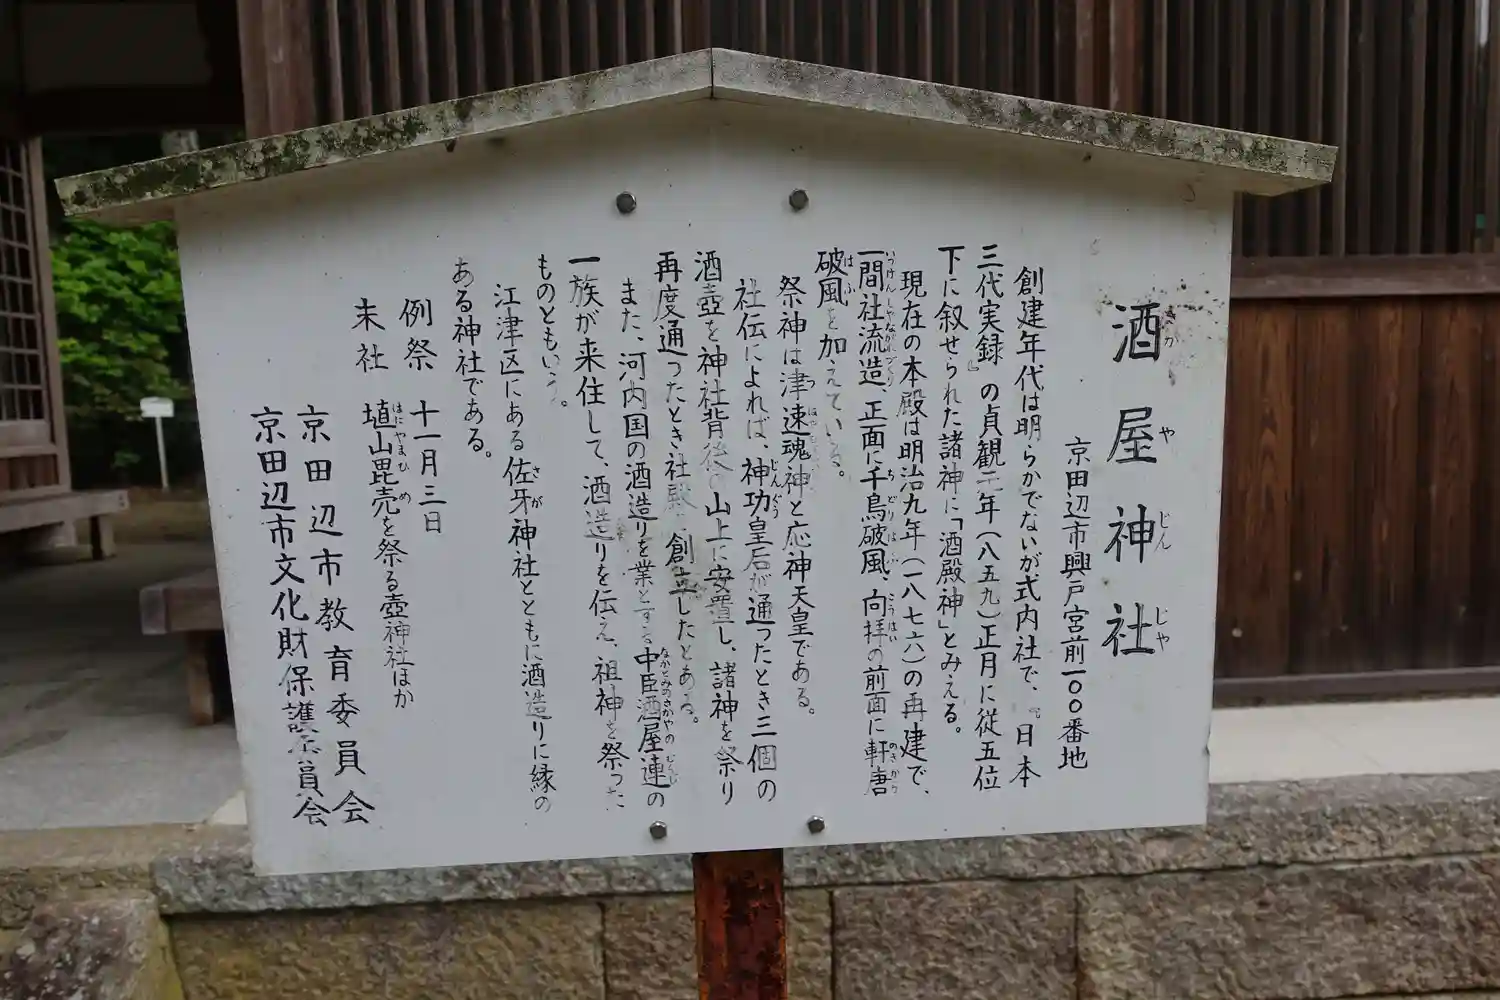 酒屋神社
京田辺市興戸宮前一〇〇番地
創建年代は明らかでないが式内社で、『日本
三代実録』の貞観元年(八五九)正月に従五位
下に叙せられた諸神に「酒殿神」とみえる。
現在の本殿は明治九年(一八七六)の再建で、
一間社流造、正面に千鳥破風、向拝の前面に軒唐
破風を加えている。
祭神は津速魂神と応神天皇である。
社伝によれば、神功皇后が通ったとき三個の
酒壺を神社背後の山上に安置し、諸神を祭り
再度通ったとき社殿を創立したとある。
また、河内国の酒造りを業とする中臣酒屋連の
一族が来住して、酒造りを伝え、祖神を祭った
ものともいう。
江津区にある佐牙神社とともに酒造りに縁の
ある神社である。
例祭 十一月三日
末社 埴山毘売を祭る壺神社ほか
京田辺市教育委員会
京田辺市文化財保護委員会